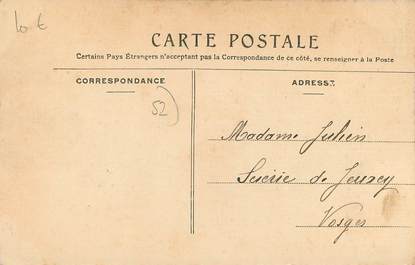 10 €
CARTE POSTALE
Certains Pays Étrangers n'acceptant pas la Correspondance de ce côté, se renseigner à la Poste
CORRESPONDANCE
ADRESSE
52
Madame Julien
Scierie de Jeuxey
Vosges